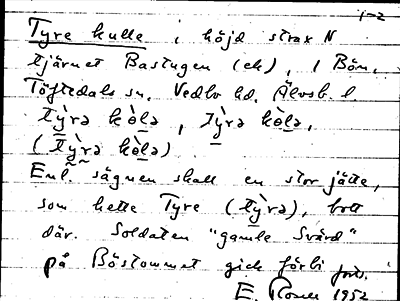 1-2
Tyre kulle i höjd strax N
tjärnet Bastugen (ek), i Bön,
Töftedals sn. Vedbo hd. Älvsb. l.
tỳrə kòlə, tỳrə kòlə,
(tỳrə kòlə)
Enl. sägnen skall en stor jätte,
som hette Tyre (tỳrə), bott
där. Soldaten "gamle Svärd"
på Böstommet gick förbi
E. 1952